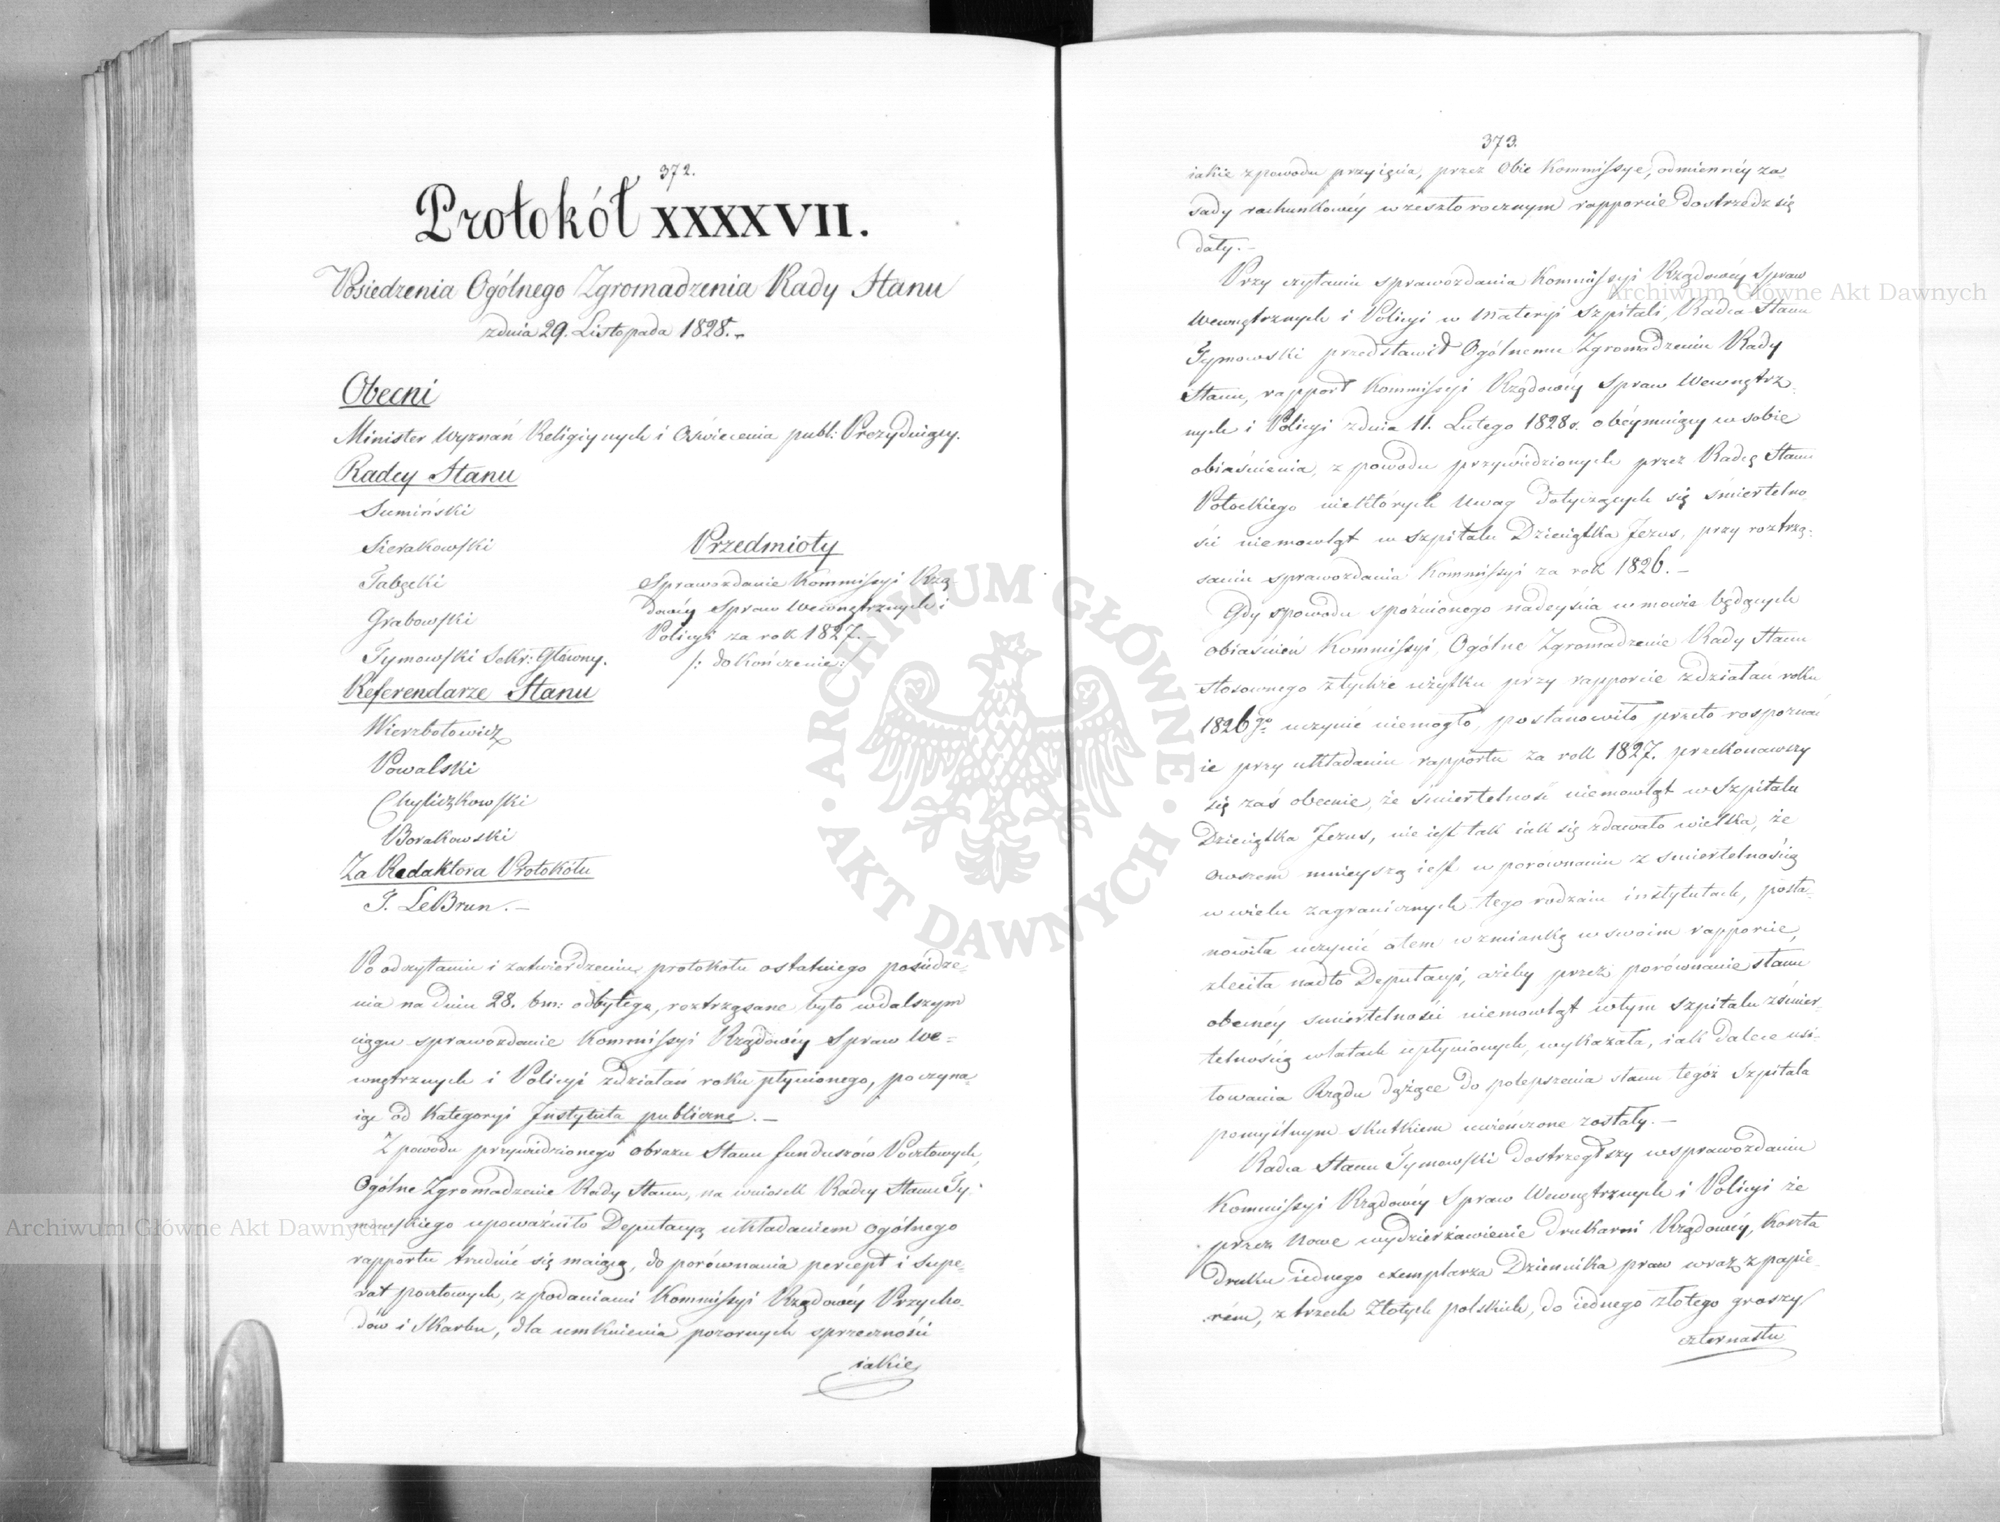 372.
Protokół XXXXVII.
Posiedzenia Ogólnego Zgromadzenia Rady Stanu
z dnia 29. Listopada 1828.
Obecni
Minister Wyznań Religiynych i Oświecenia publ: Prezyduiący.
Radcy Stanu
Sumiński
Sierakowski
Tabęcki
Grabowski
Tymowski Sekr: Główny.
Referendarze Stanu
Wierzbołowicz
Powalski
Chyliczkowski
Borakowski
Za Redaktora Protokółu
J. LeBrun.
Przedmioty
Sprawozdanie Kommissyi Rzą-
dowéy Spraw Wewnętrznych i
Policyi za rok 1827.
/: dokończenie :/
Po odczytaniu i zatwierdzeniu protokołu ostatniego posiedze-
nia na dniu 28. bm: odbytego, roztrząsane było w dalszym
ciągu sprawozdanie Kommissyi Rządowéy Spraw We-
wnętrznych i Policyi z działań roku płynionego, poczyna-
iąc od Kategoryi Instytuta publiczne.
Z powodu przywiedzionego obrazu Stanu funduszów Pocztowych,
Ogólne Zgromadzenie Rady Stanu, na wniosek Radcy Stanu Ty-
mowskiego upoważniło Deputacyą układaniem ogólnego
rapportu trudnić się maiącą, do porównania percept i supe-
rat pocztowych, z podaniami Kommissyi Rządowéy Przycho-
dów i Skarbu, dla umknienia pozornych sprzeczności
iakie
373.
iakie z powodu przyięcia, przez Obie Kommissye, odmiennéy za-
sady rachunkowéy w zeszłorocznym rapporcie dostrzedz się
dały.
Przy czytaniu sprawozdania Kommissyi Rządowéy Spraw
Wewnętrznych i Policyi w materyi szpitali, Radca Stanu
Tymowski przedstawił Ogólnemu Zgromadzeniu Rady
Stanu, rapport Kommissyi Rządowéy Spraw Wewnętrz-
nych i Policyi z dnia 11. Lutego 1828 r. obéymuiący w sobie
obiaśnienia, z powodu przywiedzionych przez Radcę Stanu
Potockiego niektórych uwag dotyczących się śmiertelno
ści niemowląt w szpitalu Dzieciątka Jezus, przy roztrzą-
saniu sprawozdania Kommissyi za rok 1826.
Gdy z powodu spóźnionego nadeyścia w mowie będących
obiaśnień Kommissyi, Ogólne Zgromadzenie Rady Stanu
stosownego z tychże użytku przy rapporcie z działań roku
1826go uczynić niemogło, postanowiło przeto rospozna
ie przy układaniu rapportu za rok 1827. przekonawszy
się zaś obecnie, że śmiertelność niemowląt w Szpitalu
Dzieciątka Jezus, nie iest tak iak się zdawało wielka, że
owszem mnieyszą iest w porównaniu z śmiertelnością
w wielu zagranicznych tego rodzaiu instytutach, posta-
nowiła uczynić o tem wzmiankę w swoim rapporcie,
zleciła nadto Deputacyi, ażeby przez porównanie stanu
obecnéy śmiertelności niemowląt w tym szpitalu z śmier-
telnością w latach upłynionych, wykazała, iak dalece usi-
łowania Rządu dążące do polepszenia stanu tegóż Szpitala
pomyślnym skutkiem uwieńczone zostały.
Radca Stanu Tymowski dostrzegłszy w sprawozdaniu
Kommissyi Rządowéy Spraw Wewnętrznych i Policyi że
przez nowe wydzierżawienie drukarni Rządowéy, koszta
druku iednego exemplarza Dziennika praw wraz z papie-
rem, z trzech złotych polskich, do iednego złotego groszy
czternastu
Archiwum Główne Akt Dawnych
Archiwum Główne Akt Dawnych
ARCHIWUM GŁÓWNE
AKT DAWNYCH